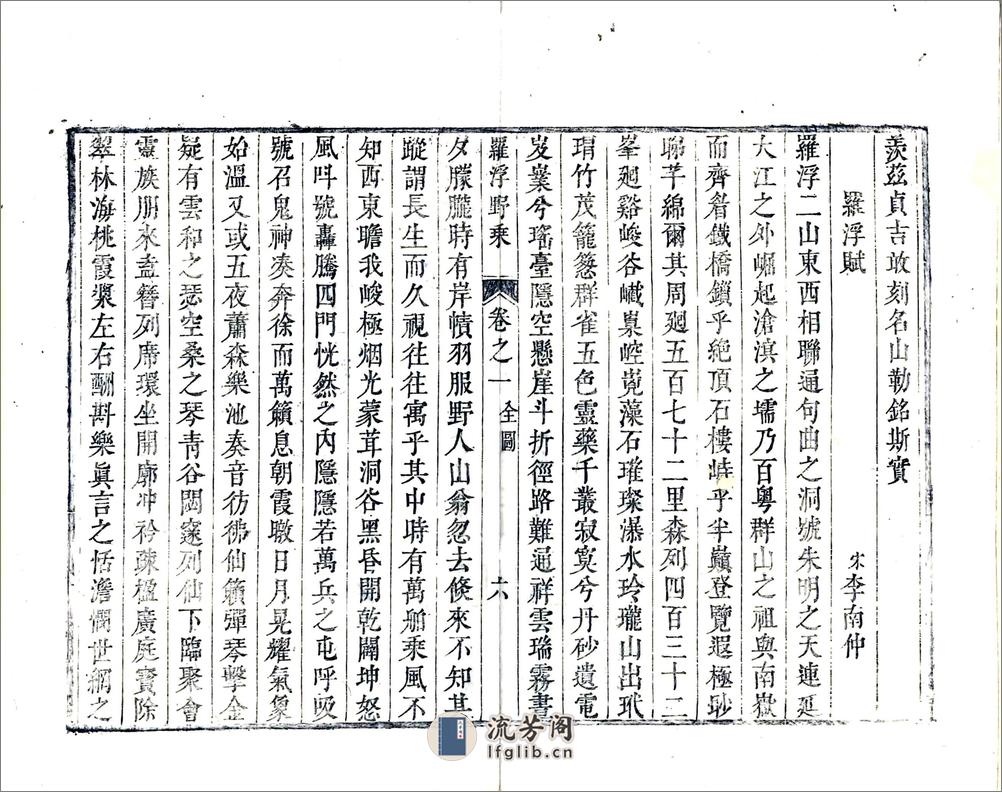 羨茲貞吉敢刻名山勒銘斯實
羅浮賦
宋李南仲
羅浮二山東西相聯通句曲之洞號朱明之天連延
大江之外崛起滄溟之壖乃百粤群山之祖與南嶽
而齊肩鐵橋鎖乎絶頂石樓峙乎半巔登覽遐極眇
睇芊綿爾其周廻五百七十二里森列四百三十二
峯廻谿峻谷巇嵲崆嵸藻石璀璨瀑水玲瓏山出玳
瑁竹茂籠蔥群雀五色靈藥千叢寂寞兮丹砂遺電
岌嶪兮瑤臺隱空懸崖斗折徑路難通祥雲瑞霧晝
夕朦朧時有岸幘羽服野人山翁忽去倐來不知其
蹤謂長生而久視往往寓乎其中時有萬舶乘風不
知西東瞻我峻極烟光蒙茸洞谷黑昏開乾闔坤怒
風呌號轟騰四門恍然之內隱隱若萬兵之屯呼吸
號召鬼神凑奔徐而萬籟息朝霞暾日月晃耀氣象
始溫又或五夜蕭森樂池奏音彷彿仙籟彈琴擊金
疑有雲和之瑟空桑之琴青谷閟窱列仙下臨聚會
靈族朋來盍簪列席環坐開廓冲衿疎楹廣庭寳除
翠林海桃霞漿左右酬斟樂眞言之恬澹憫世網之
羅浮野乘
卷之一
全圖
六
流芳阁
lfglib.cn